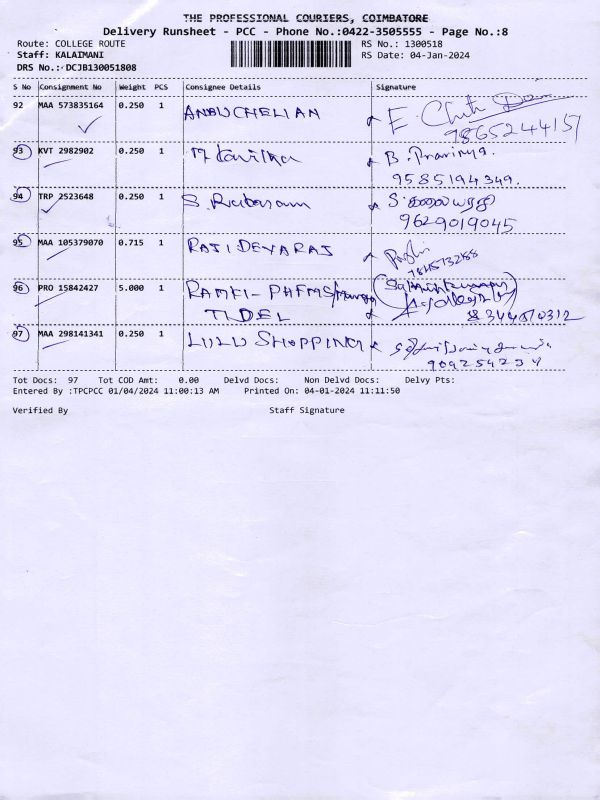 THE PROFESSIONAL COURIERS, COIMBATORE
Delivery Runsheet - PCC - Phone No.:0422-3505555 - Page No.:8
Route: COLLEGE ROUTE RS No.: 1300518
Staff: KALAIMANI RS Date: 04-Jan-2024
DRS No.: DCJB130051808
S No Consignment No Weight PCS Consignee Details Signature
92 MAA 573835164 0.250 1 ANBUCHELIAN E.
9865244157
93 KVT 2982902 0.250 1 B. Pravinya.
9585194349.
94 TRP 2523648 0.250 1 S.
9629019045
95 MAA 105379070 0.715 1 RAJI DEVARAJ
96 PRO 15842427 5.000 1 RAMKI-
TIDEL
97 MAA 298141341 0.250 1 LULU SHOPPING
Tot Docs: 97 Tot COD Amt: 0.00 Delvd Docs: Non Delvd Docs: Delvy Pts:
Entered By :TPCPCC 01/04/2024 11:00:13 AM Printed On: 04-01-2024 11:11:50
Verified By Staff Signature